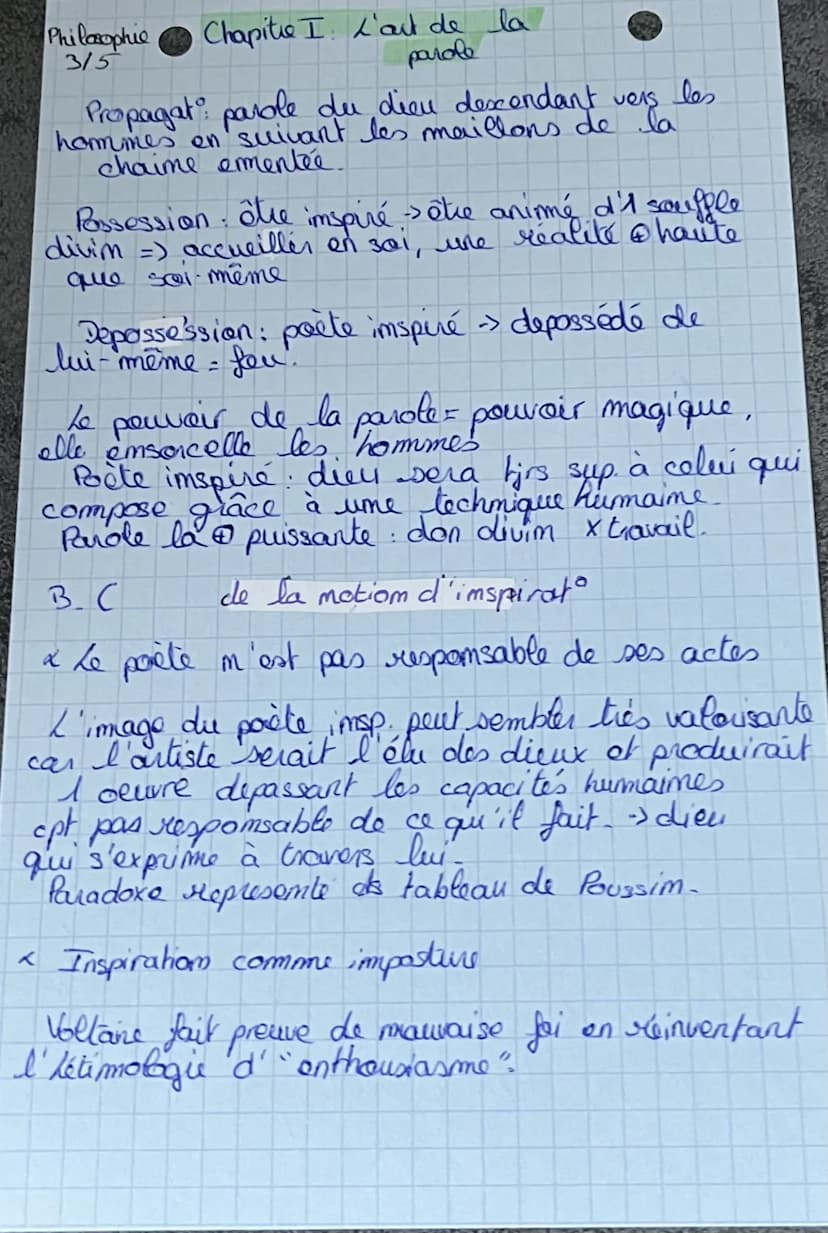 Philosophie
3/5
Chapitre I : L'art de la
parole
Propagat° : parole du dieu descendant vers les
hommes en suivant les maillons de la
chaine ementée.
Possession : être inspiré -> être animé d'1 souffle
divin => accueillir en soi, une réalité ⊕ haute
que soi-même
Depossession : poète inspiré -> depossédé de
lui-même = fou.
Le pouvoir de la parole = pouvoir magique,
elle ensorcelle les hommes
Poète inspiré : dieu sera tjrs sup. à celui qui
compose grâce à une technique humaine
Parole la ⊕ puissante : don divin x travail.
B. C de la notion d'inspirat°
α Le poète n'est pas responsable de ses actes
L'image du poète insp. peut sembler très valorisante
car l'artiste serait l'élu des dieux et produirait
1 oeuvre depassant les capacités humaines
cpt pas responsable de ce qu'il fait. -> dieu
qui s'exprime à travers lui.
Paradoxe représenté ds tableau de Poussin.
α Inspiration comme imposture
Voltaire fait preuve de mauvaise foi en réinventant
l'étimologie d' "enthousiasme".